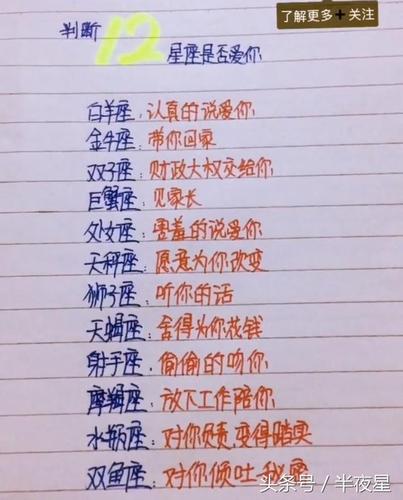 了解更多+关注
判断12星座是否爱你
白羊座:认真的说爱你
金牛座:带你回家
双子座:财政大权交给你
巨蟹座:见家长
处女座:害羞的说爱你
天秤座:愿意为你改变
狮子座:听你的话
天蝎座:舍得为你花钱
射手座:偷偷的吻你
摩羯座:放下工作陪你
水瓶座:对你负责,变得踏实
双鱼座:对你倾吐秘密
头条号/半夜星